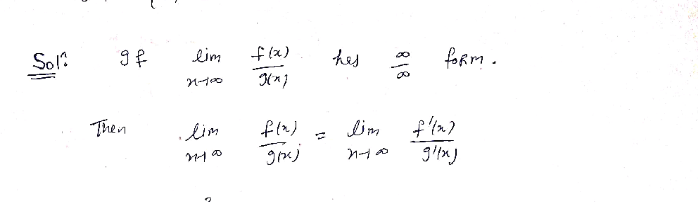 Solⁿ: If lim x→∞ f(x)/g(x) hes ∞/∞ foRm.
Then lim x→∞ f(x)/g(x) = lim x→∞ f'(x)/g'(x)